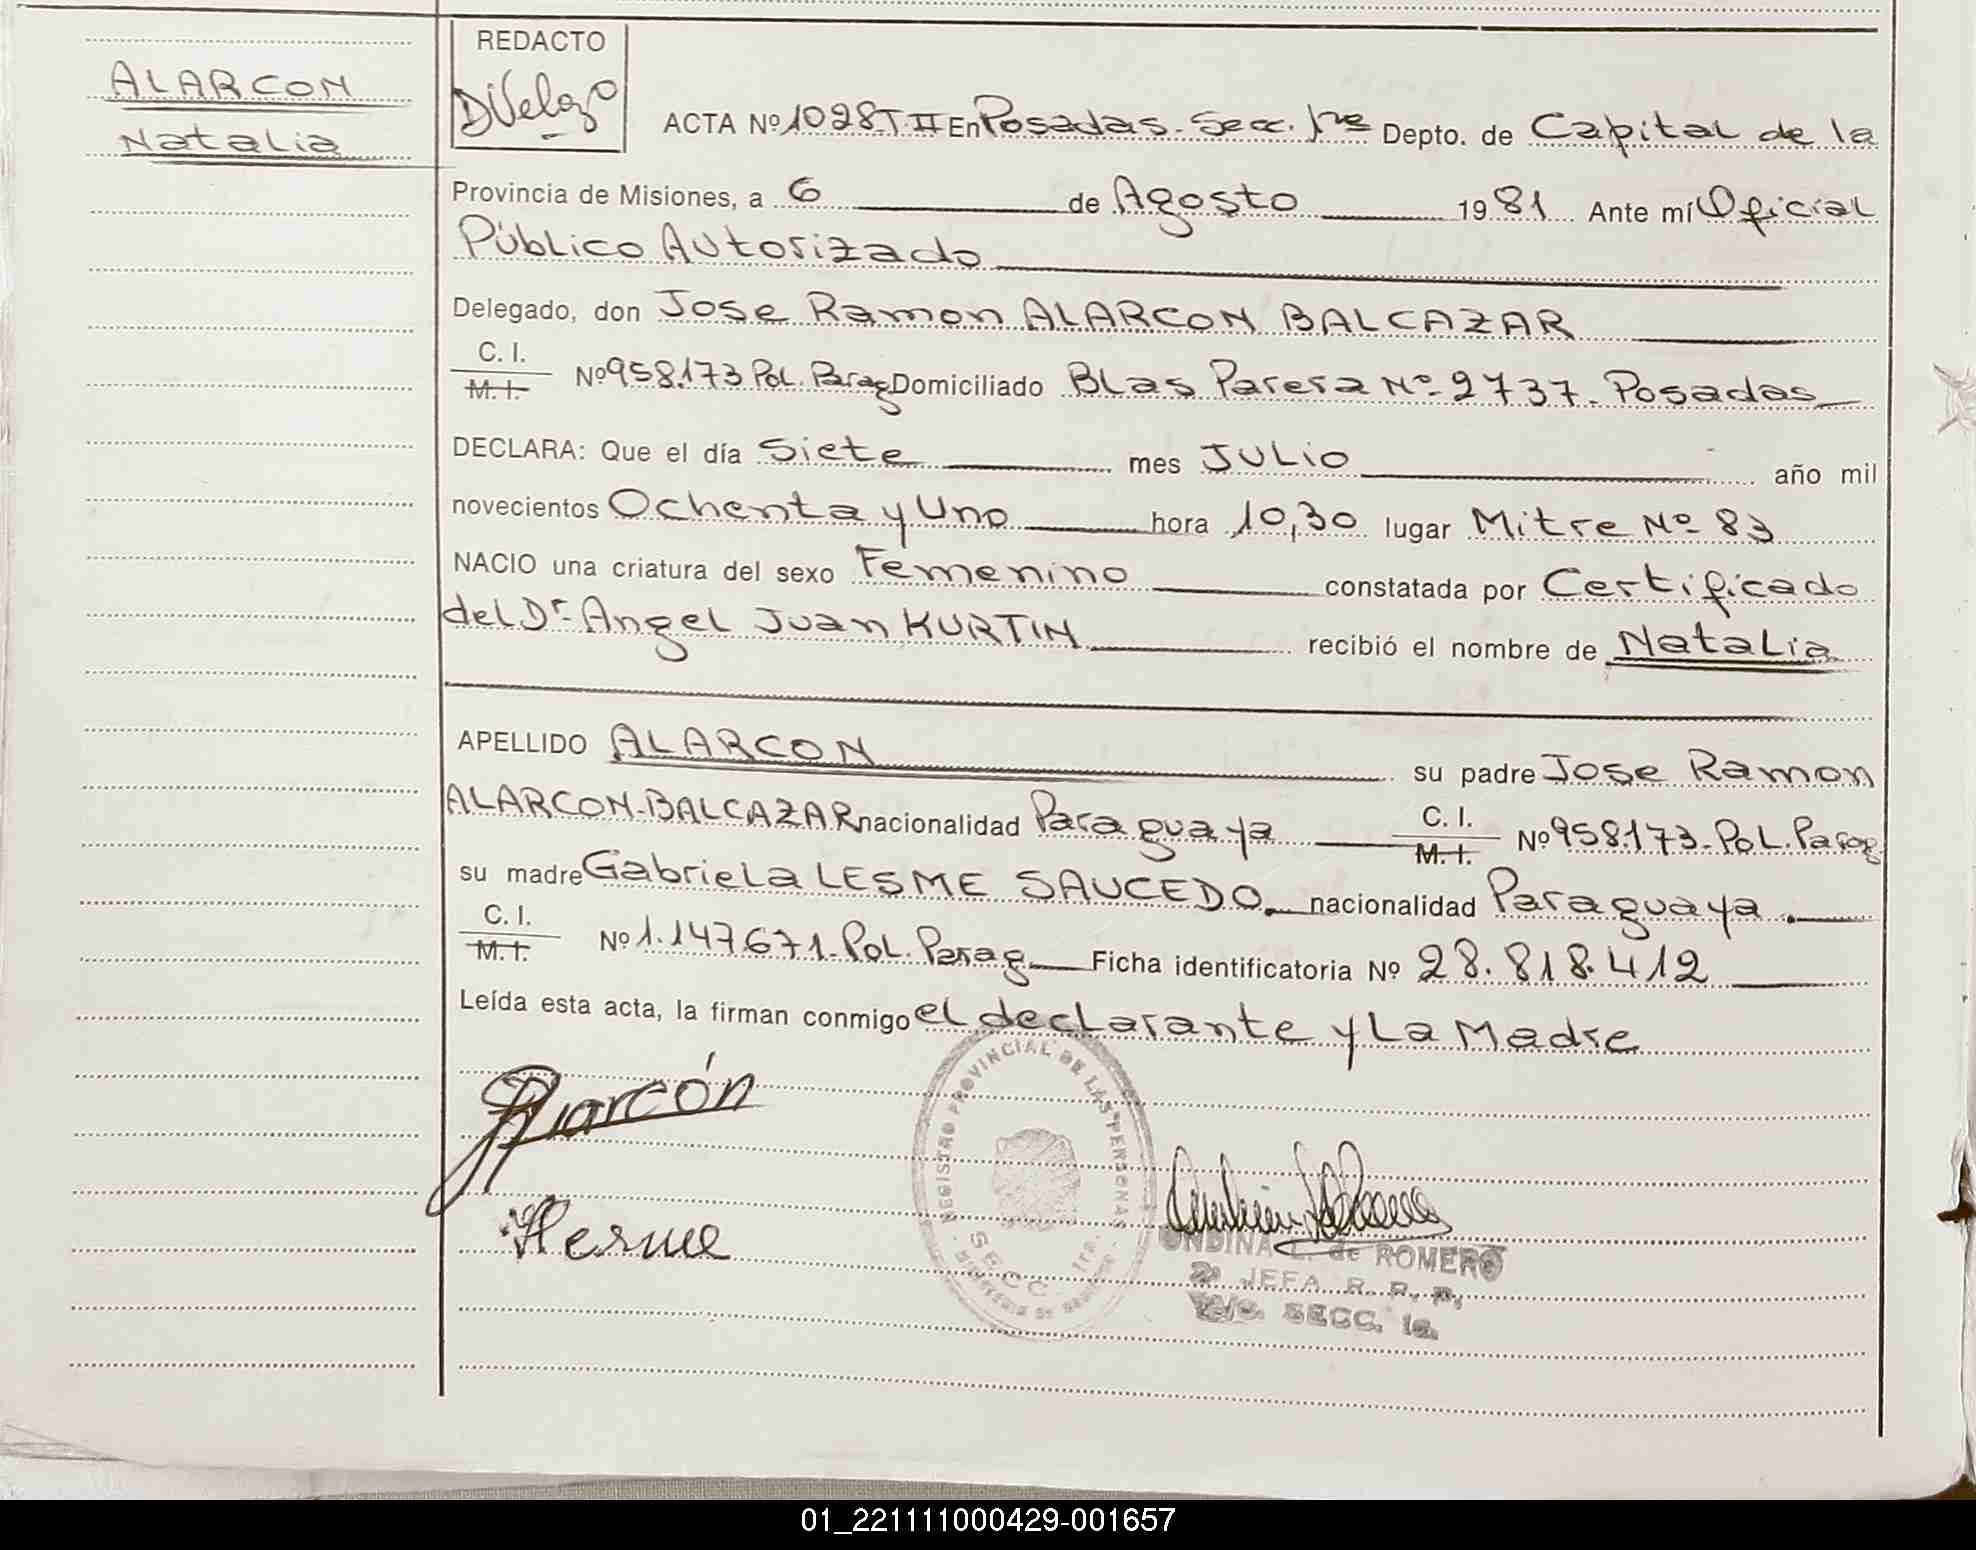 ALARCON
Natalia
REDACTO
DVelozo
ACTA Nº 1028-T-II En Posadas-Secc. 1ra Depto. de Capital de la
Provincia de Misiones, a 6 de Agosto 1981 Ante mí Oficial
Público Autorizado
Delegado, don Jose Ramon ALARCON BALCAZAR
C. I.
M. I. Nº 958.173 Pol. Parag Domiciliado Blas Parera Nº 2737. Posadas
DECLARA: Que el día Siete mes JULio año mil
novecientos Ochenta y Uno hora 10,30 lugar Mitre Nº 83
NACIO una criatura del sexo Femenino constatada por Certificado
del Dr. Angel Juan KURTIN recibió el nombre de Natalia
APELLIDO ALARCON su padre Jose Ramon
ALARCON-BALCAZAR nacionalidad Paraguaya C. I. M. I. Nº 958.173-Pol. Parag
su madre Gabriela LESME SAUCEDO. nacionalidad Paraguaya.
C. I.
M. I. Nº 1.147.671-Pol. Parag Ficha identificatoria Nº 28.818.412
Leída esta acta, la firman conmigo el declarante y La Madre
Alarcón
REGISTRO PROVINCIAL DE LAS PERSONAS
SECC. 1ra.
ONDINA L. de ROMERO
JEFA R. P. P.
SECC. 1a.
01_221111000429-001657